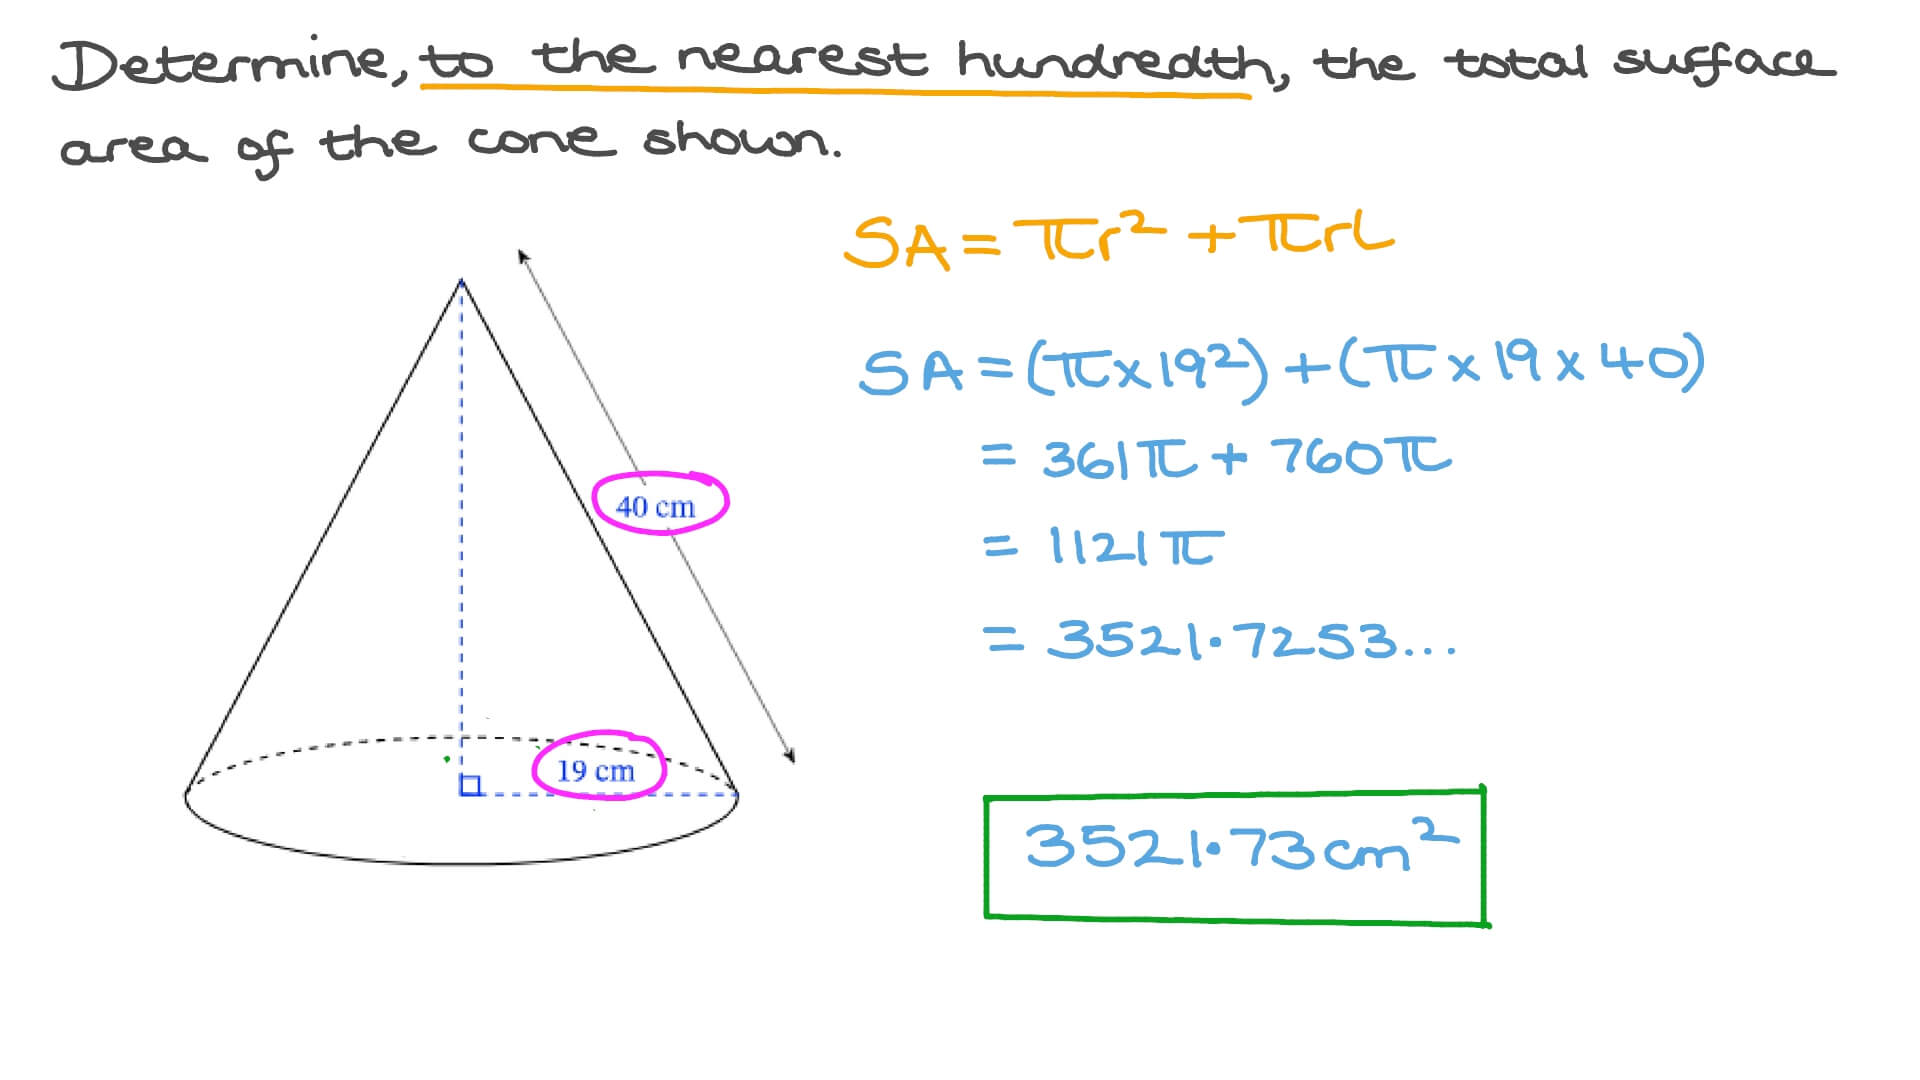 Determine, to the nearest hundredth, the total surface
area of the cone shown.
SA = πr² + πrL
SA = (π × 19²) + (π × 19 × 40)
= 361π + 760π
40 cm
= 1121π
= 3521·7253...
19 cm
3521·73 cm²